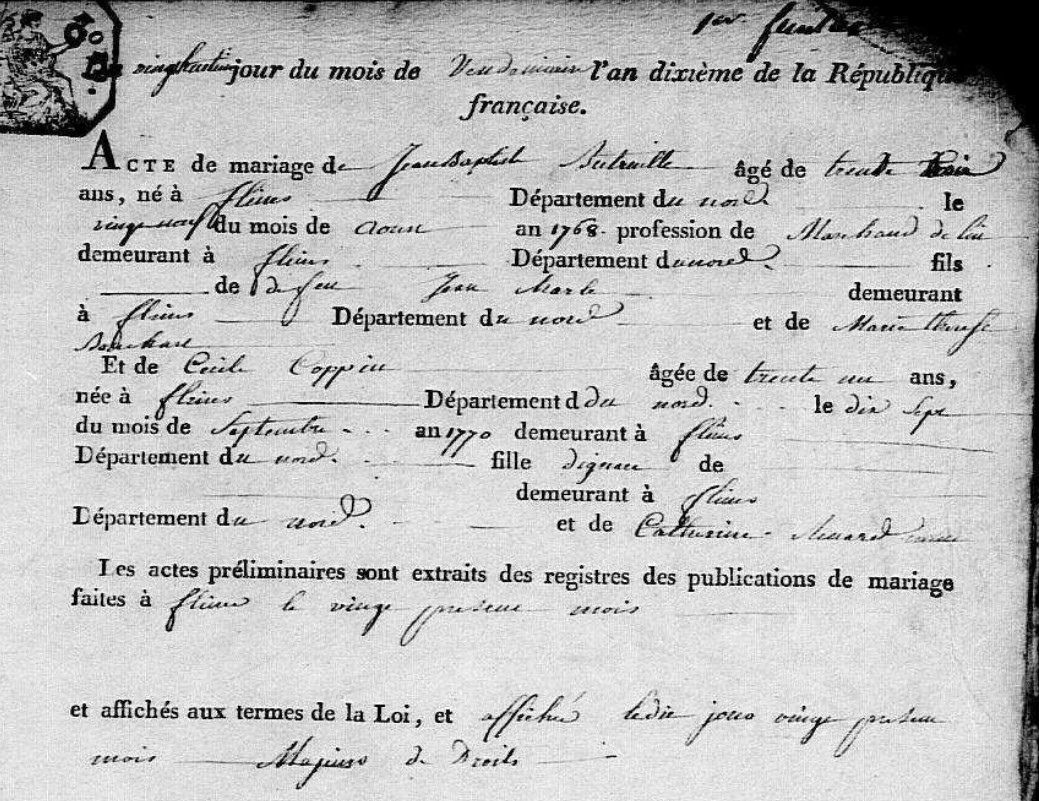 Du vingt huitieme jour du mois de Vendemiaire l'an dixième de la République
française.
ACTE de mariage de Jean Baptiste âgé de trente trois
ans, né à flines Département du nord le
vingt neuf du mois de aoust an 1768 profession de Marchand de lin
demeurant à flines Département du nord fils
de defeu Jean Marle demeurant
à flines Département du nord et de Marie therese
Et de Cecile Coppin âgée de trente un ans,
née à flines Département d du nord. le dix Sept
du mois de Septembre an 1770 demeurant à flines
Département du nord. fille de
demeurant à flines
Département du nord. et de Catherine
Les actes préliminaires sont extraits des registres des publications de mariage
faites à flines le vingt present mois
et affichés aux termes de la Loi, et affiché ledit jour vingt present
mois Majeurs de Droits